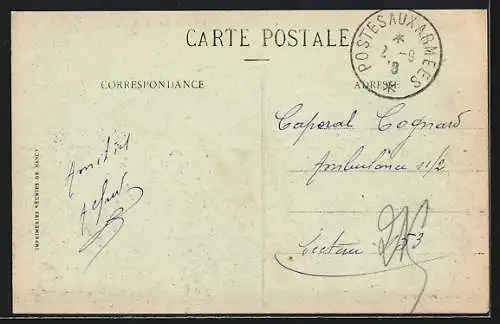 CARTE POSTALE
POSTES AUX ARMÉES
* 2 - 8
8 *
CORRESPONDANCE
ADRESSE
Amitiés
Caporal Cognard
Ambulance 11/2
Secteur 153
IMPRIMERIES RÉUNIES DE NANCY